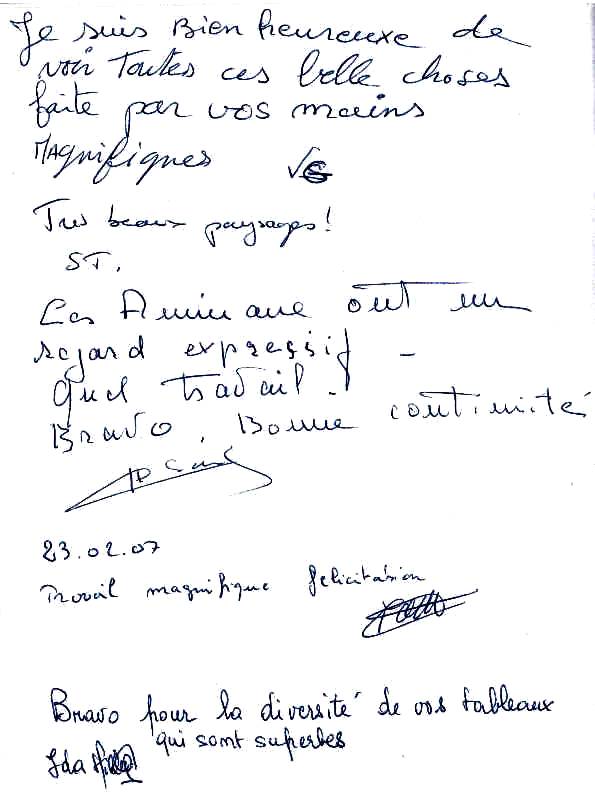 Je suis Bien heureuxe de
voir toutes ces belle choses
faite par vos mains
MAgnifiques
Tres beaux paysages!
ST.
Les Animaue ont un
regard expressif –
Quel travail -
Bravo, Bonne continuité
23.02.07
Travail magnifique felicitasion
Bravo pour la diversité de vos tableaux
qui sont superbes
Ida